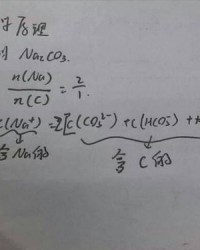 的 Na₂CO₃.
n(Na)/n(C) = 2/1.
c(Na⁺) = 2[c(CO₃²⁻) + c(HCO₃⁻) +
含 Na的
含 C的